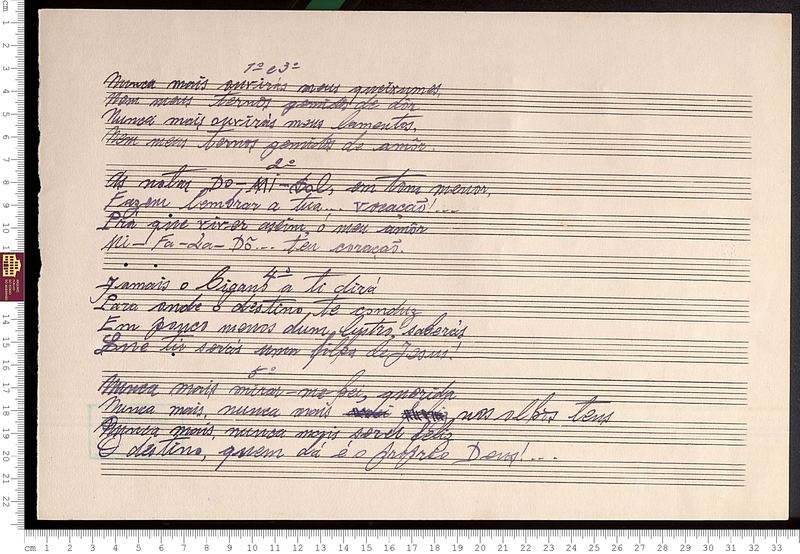 1º e 3º
Nunca mais ouvirás meus queixumes,
Nem meus ternos gemidos de dôr
Nunca mais ouvirás meus lamentos,
Nem meus ternos gemidos de amôr.
2º
As notas Do-Mi-Sol, em tom menor,
Fazem lembrar a tua... vocacão!...
Pra que viver assim, ó meu amôr
Mi-Fa-La-Dó... teu coração.
4º
Jamais o Cigano a ti dirá
Para onde o destino, te conduz
Em pouco menos dum lustro, saberás
Que tu serás uma filha de Jesus!
5º
Nunca mais mirar-me-hei, querida
Nunca mais, nunca mais nos olhos teus
Nunca mais, nunca mais serei feliz
O destino, quem dá é o próprio Deus!...